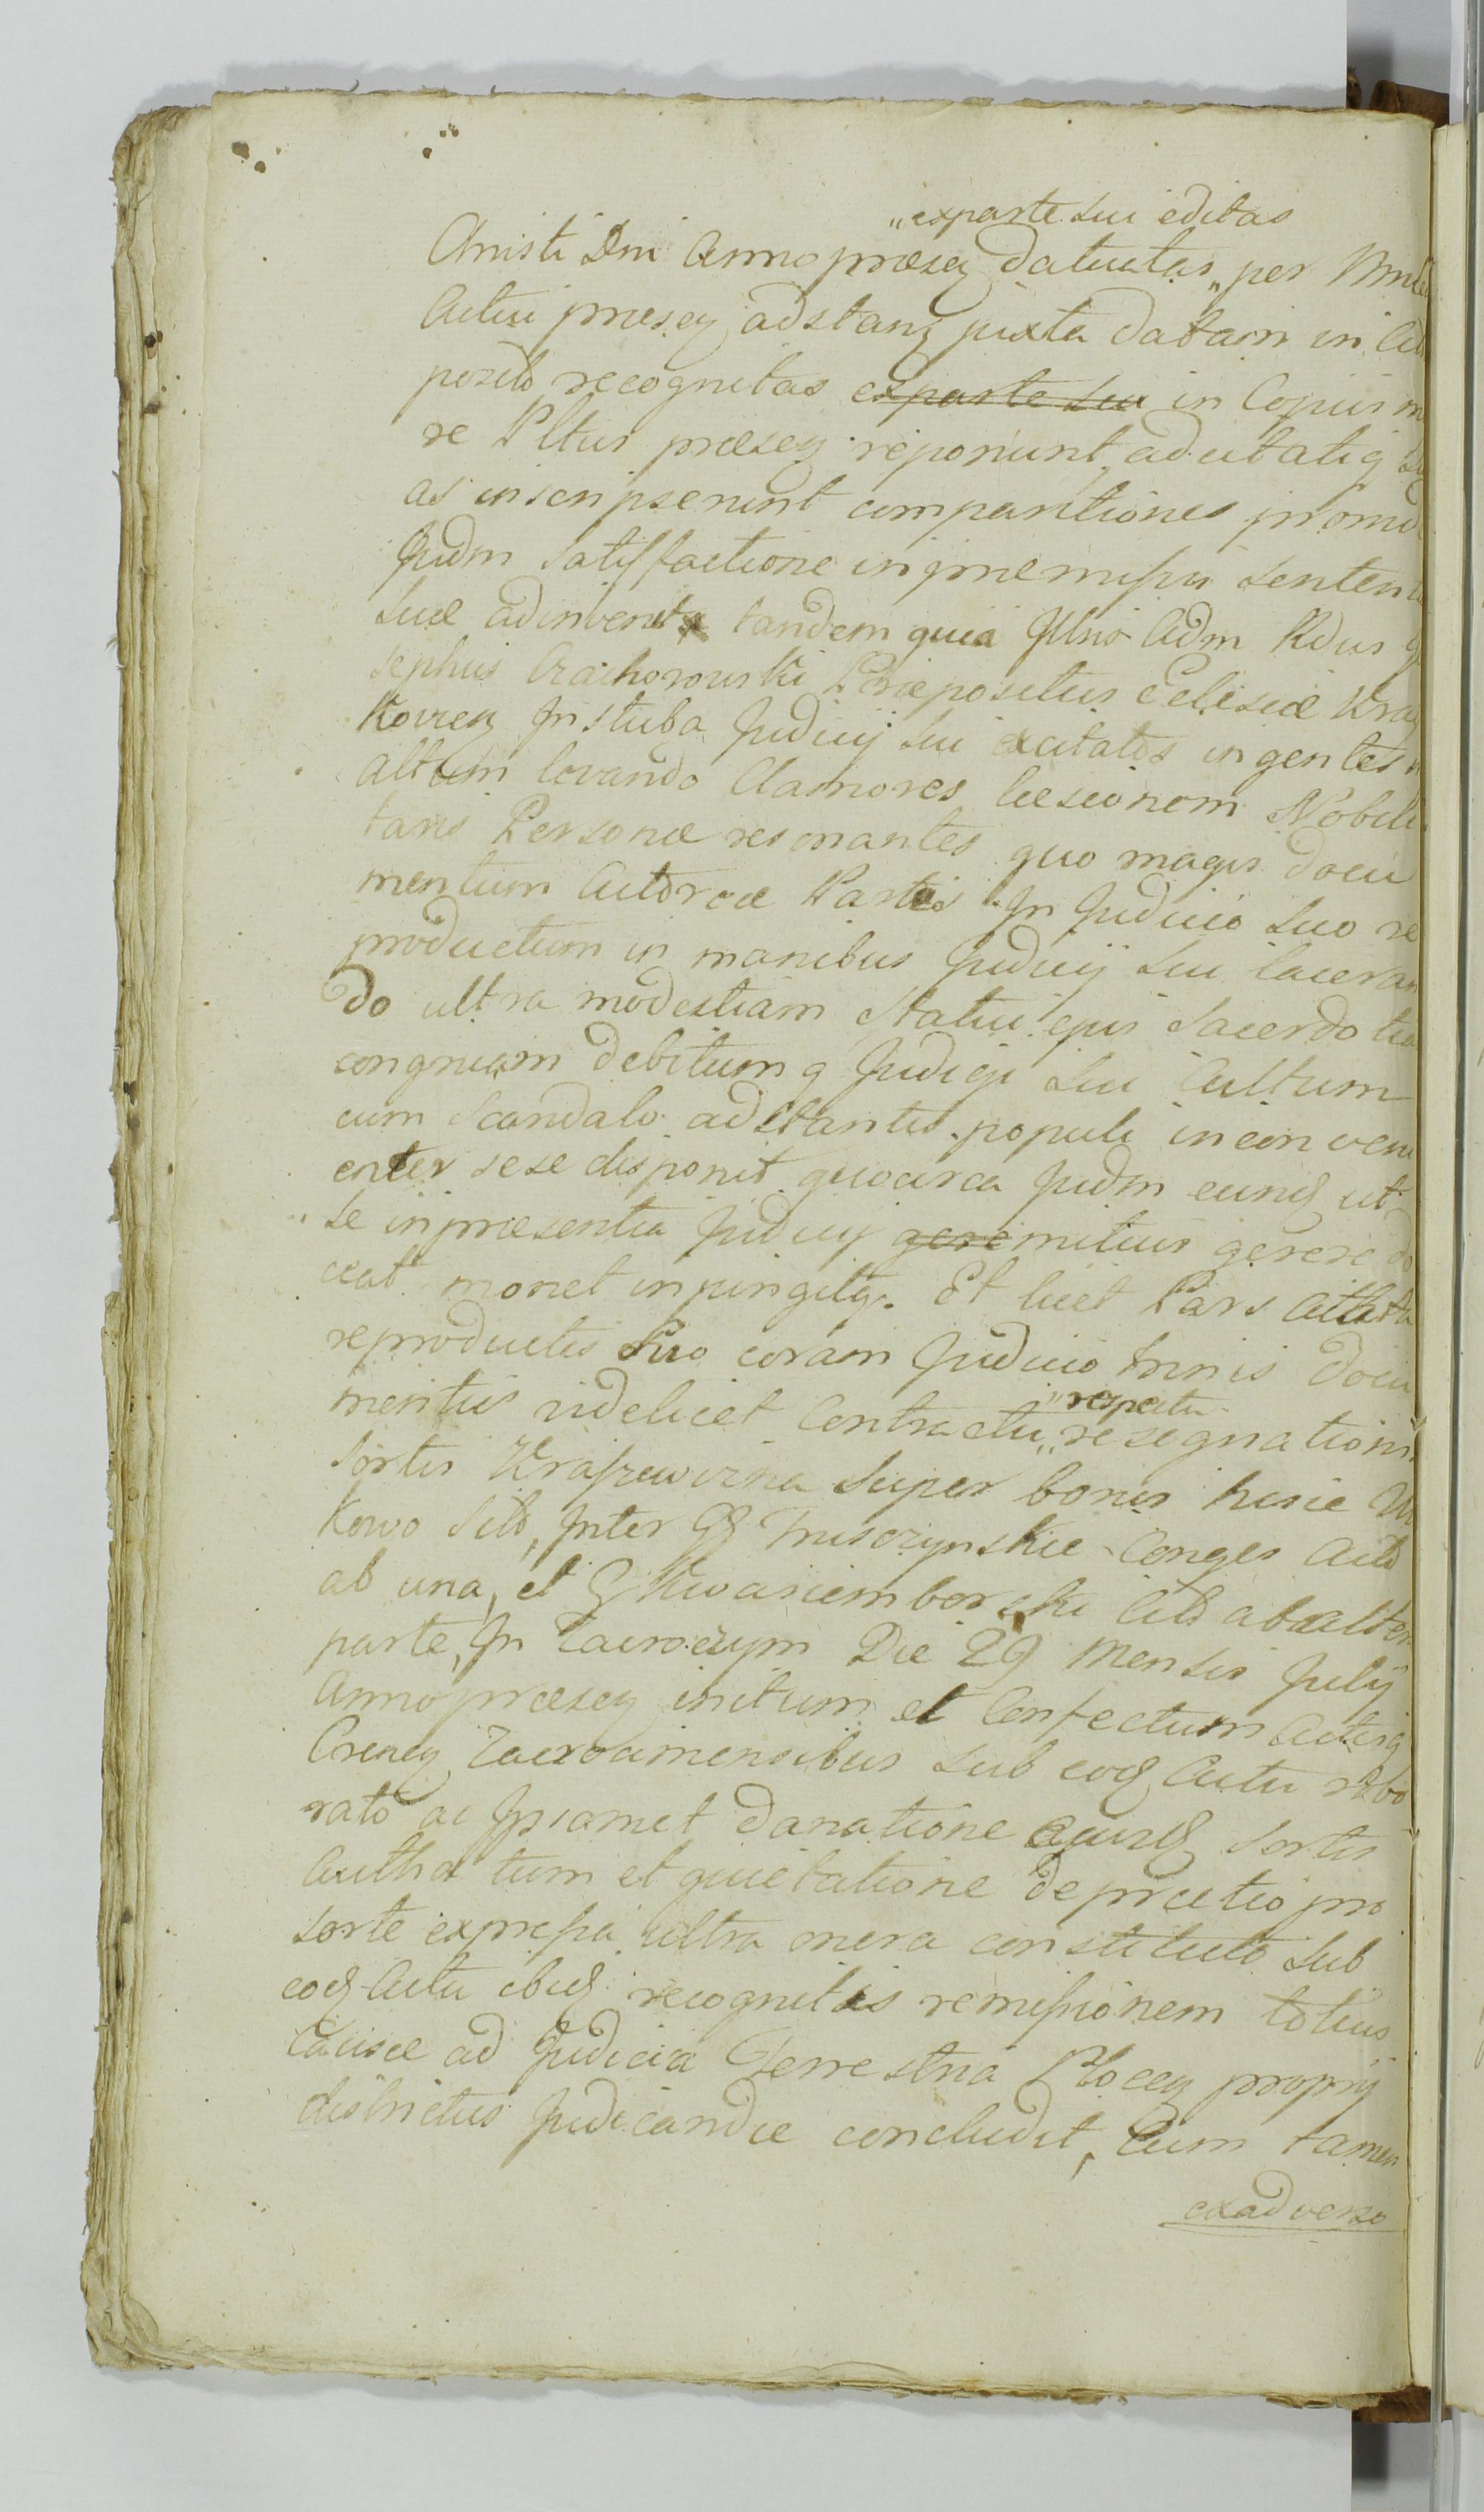 „exparte sui editas
Christi Dni Anno præsey datuitas „ per
Actui præsey adstany juxta datam in
pozito recognitas exparte sui in Copiis
re Pltus præsey reponunt, ad citatiq
as inscripserint comparitiones
Judm satisfactione in præmissis senten
suæ adinventa tandem quia Illris Adm Rdus
sephus Craihorowski Præpositus Eclesiæ Kra
kovien In stuba Judicij sui excitatos ingentes
altum levando Clamores læsionem Nobili
taris Personæ resonantes quo magis docu
mentum Actoreæ Partis In Judicio suo re
productum in manibus Judicij sui laceran
do ultra modestiam Statui ejus Sacerdo
congruam debitumq Judicij sui Cultum
cum scandalo adstantis populi inconveni
enter sese disponit quocirca Judm eund ut
se in præsentia Judicij gere mitius gerere
ceat monet inpingitq. Et licet Pars
reproductis suo coram Judicio trinis docu
mentis videlicet Contractu „ resegnationis
„respectu
Sortis Krajzewizna super bonis hisce
kowo Sito, Inter GG Trusczynskie Conges Acto
ab una, et G Kwasiemborski Cito ab alte
parte, In Zacroczym Die 29 Mensis Julij
Anno præsey initum et Confectum Actisq
Crensy Zacroaimensibus sub eod Actu robo
rato ac Ipsamet donatione ejusd Sortis
Authæ tum et quietatione de prætio pro
sorte expressa ultra onera constituto sub
eod Actu ibid recognitis remissionem totius
Causæ ad Judicia Terrestria Plocen proprij
districtus Judicandæ concludit, Cum tamen
exadverso